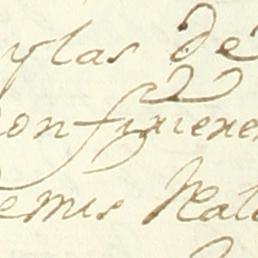 ylas de
confirieren
temis Nat